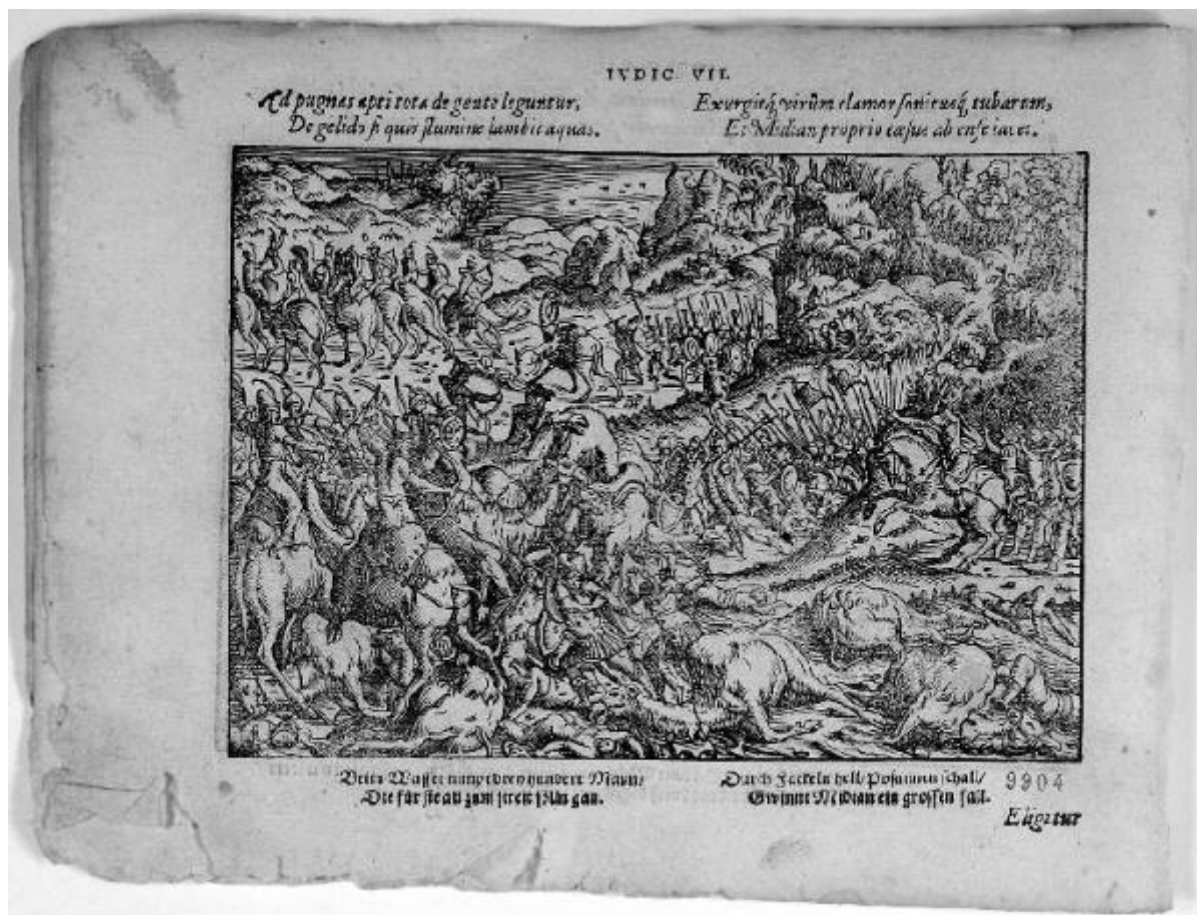 IVDIC. VII.
Ad pugnas apti tota de gente leguntur,
De gelido si quis flumine lambit aquas.
Exurgitq́ virûm clamor sonitusq́ tubarum,
Et Midian proprio cæsus ab ense iacet.
Beim Wasser nimpt drey hundert Mann/
Die für sie all zum streit
Durch Fackeln hell/ Posaunen schall/
Gwinnt Midian ein grossen fall.
9904
Eligitur